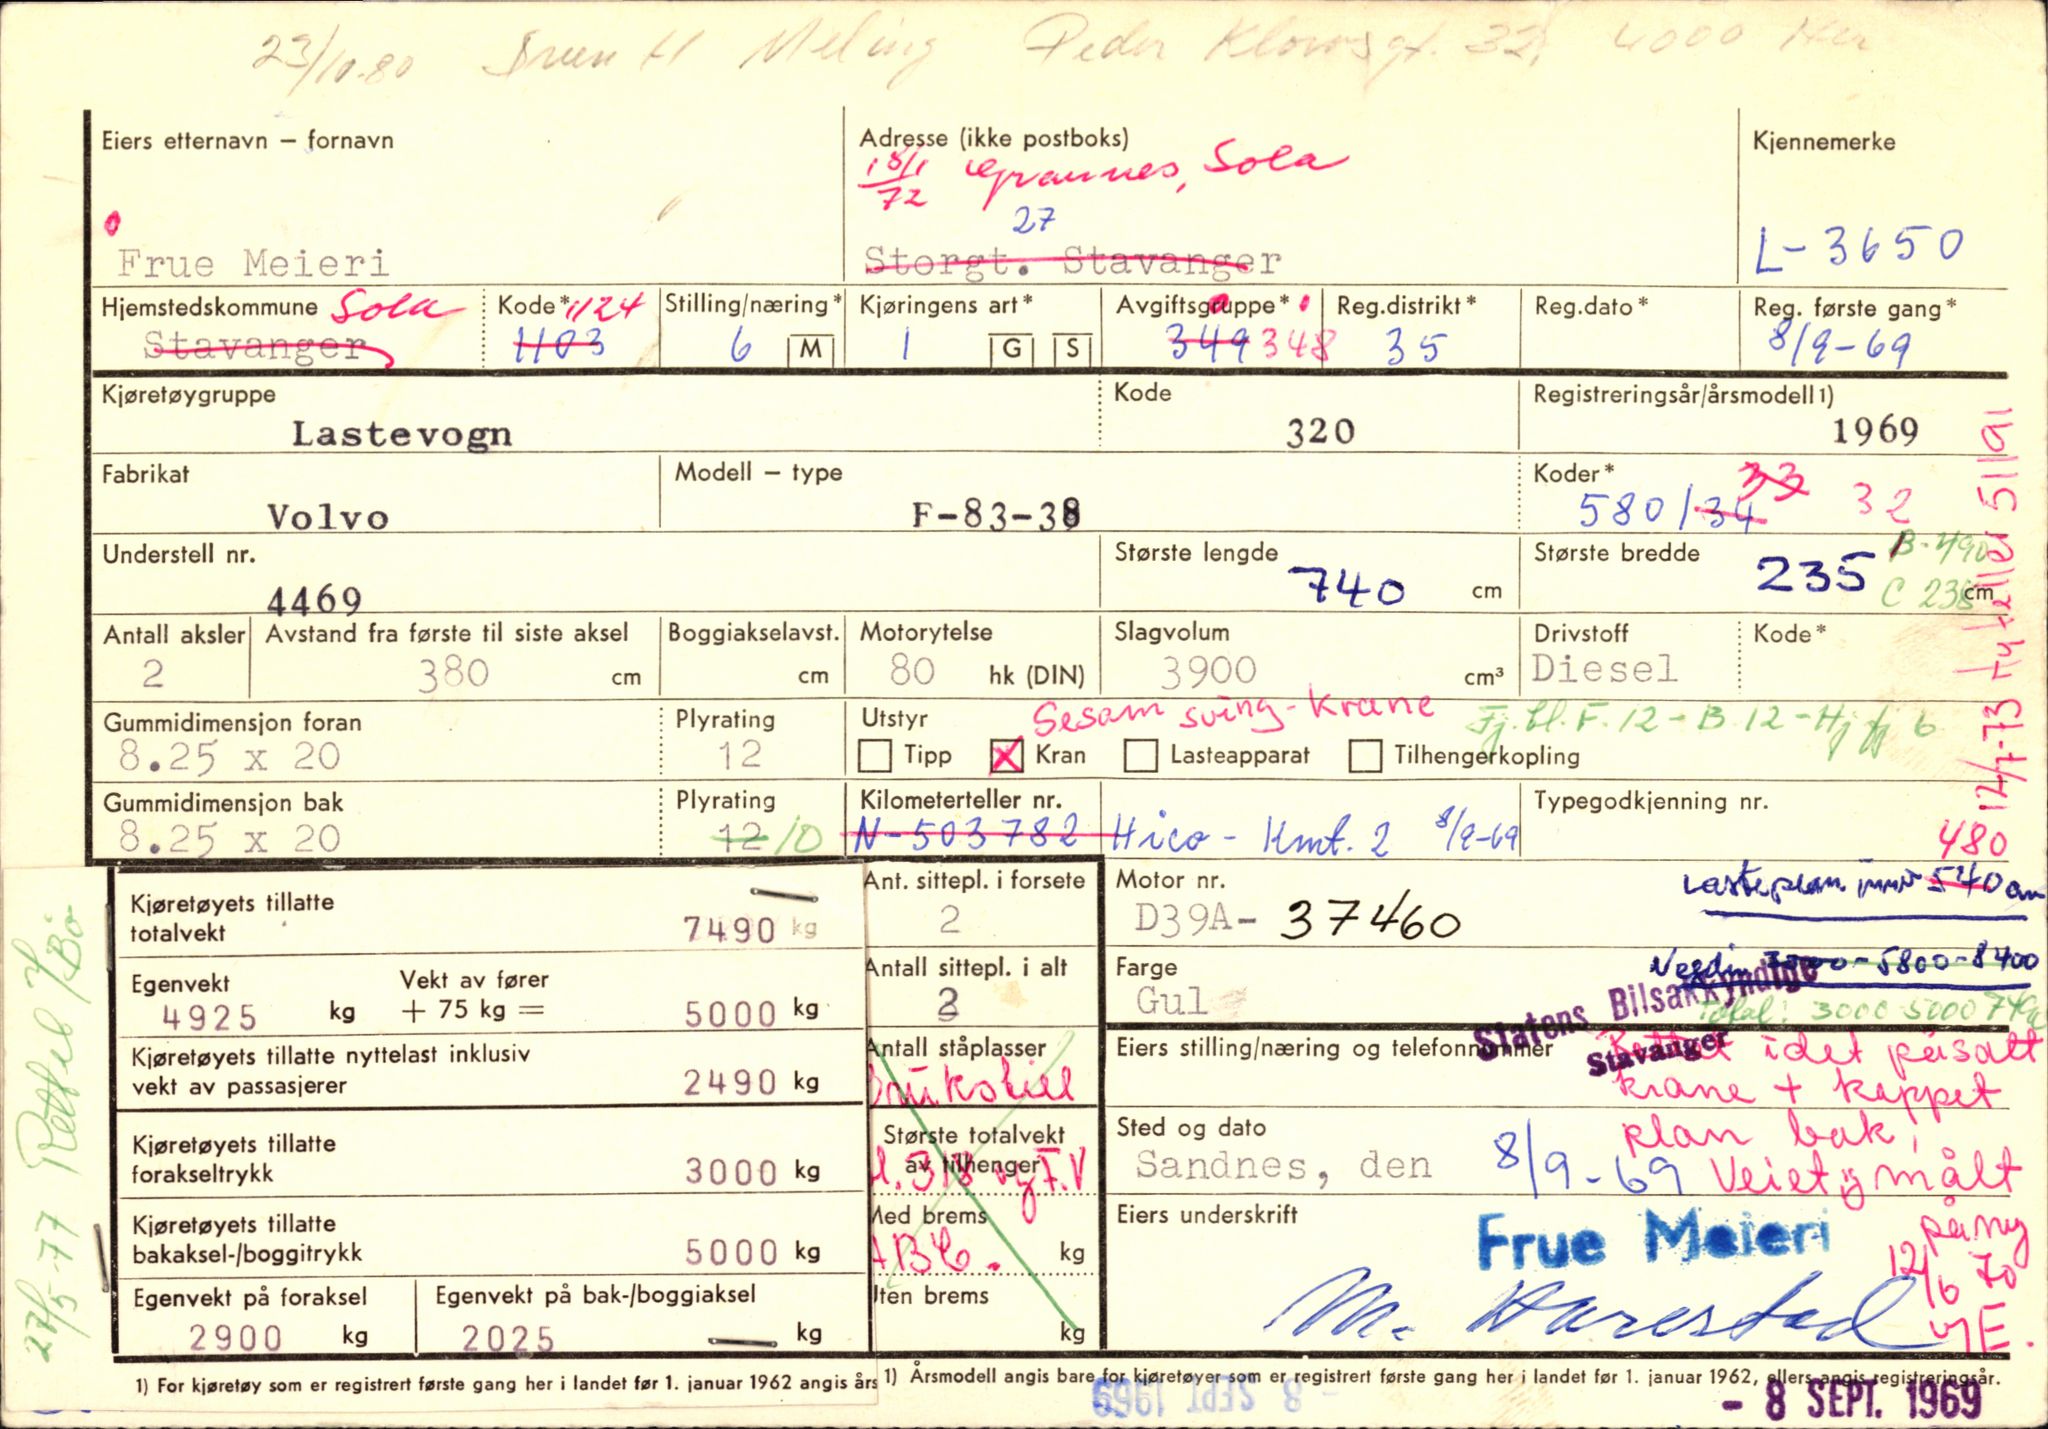 23/10.80 Meling Peder 32, 4000
Eiers etternavn – fornavn
Frue Meieri
Adresse (ikke postboks)
18/1 72 Grannes, Sola
27
Storgt. Stavanger
Kjennemerke
L-3650
Hjemstedskommune Sola
Stavanger
Kode* 1124
1103
Stilling/næring*
6 M
Kjøringens art*
1 G S
Avgiftsgruppe*
349 348
Reg.distrikt*
35
Reg.dato*
Reg. første gang*
8/9-69
Kjøretøygruppe
Lastevogn
Kode
320
Registreringsår/årsmodell 1)
1969
Fabrikat
Volvo
Modell – type
F-83-38
Koder* 33
580/34 32
Understell nr.
4469
Største lengde
740 cm
Største bredde
235 cm
B-490
C 235
Antall aksler
2
Avstand fra første til siste aksel
380 cm
Boggiakselavst.
cm
Motorytelse
80 hk (DIN)
Slagvolum
3900 cm³
Drivstoff
Diesel
Kode*
12/7-73 Ny teller 51191
Gummidimensjon foran
8.25 x 20
Plyrating
12
Utstyr Sesam sving-krane
Tipp Kran Lasteapparat Tilhengerkopling
Fj.bl.F.12-B.12-Hj fj 6
Gummidimensjon bak
8.25 x 20
Plyrating
12 10
Kilometerteller nr.
N-503782 Hico - Kmt. 2 8/9-69
Typegodkjenning nr.
480
Kjøretøyets tillatte
totalvekt
7490 kg
Egenvekt
4925 kg
Vekt av fører
+ 75 kg = 5000 kg
Kjøretøyets tillatte nyttelast inklusiv
vekt av passasjerer
2490 kg
Kjøretøyets tillatte
forakseltrykk
3000 kg
Kjøretøyets tillatte
bakaksel-/boggitrykk
5000 kg
Egenvekt på foraksel
2900 kg
Egenvekt på bak-/boggiaksel
2025 kg
1) For kjøretøy som er registrert første gang her i landet før 1. januar 1962 angis års
27/5-77 Rettel
Ant. sittepl. i forsete
2
Antall sittepl. i alt
Antall ståplasser
Største totalvekt
av tilhenger
Med brems
kg
Uten brems
kg
Motor nr.
D39A- 37460
Lasteplan innv 540 cm
Farge
Gul
3000-5800-8400
Total: 3000 5000 7490
Statens Bilsakkyndige
Stavanger
Eiers stilling/næring og telefonnummer
Rettet idet påsatt
krane + kappet
plan bak,
Veiet og målt
på ny
12/6 70
Sted og dato
Sandnes, den 8/9-69
Eiers underskrift
Frue Meieri
M. Harestad
1) Årsmodell angis bare for kjøretøyer som er registrert første gang her i landet før 1. januar 1962, ellers angis registreringsår.
- 8 SEPT. 1969
- 8 SEPT 1969